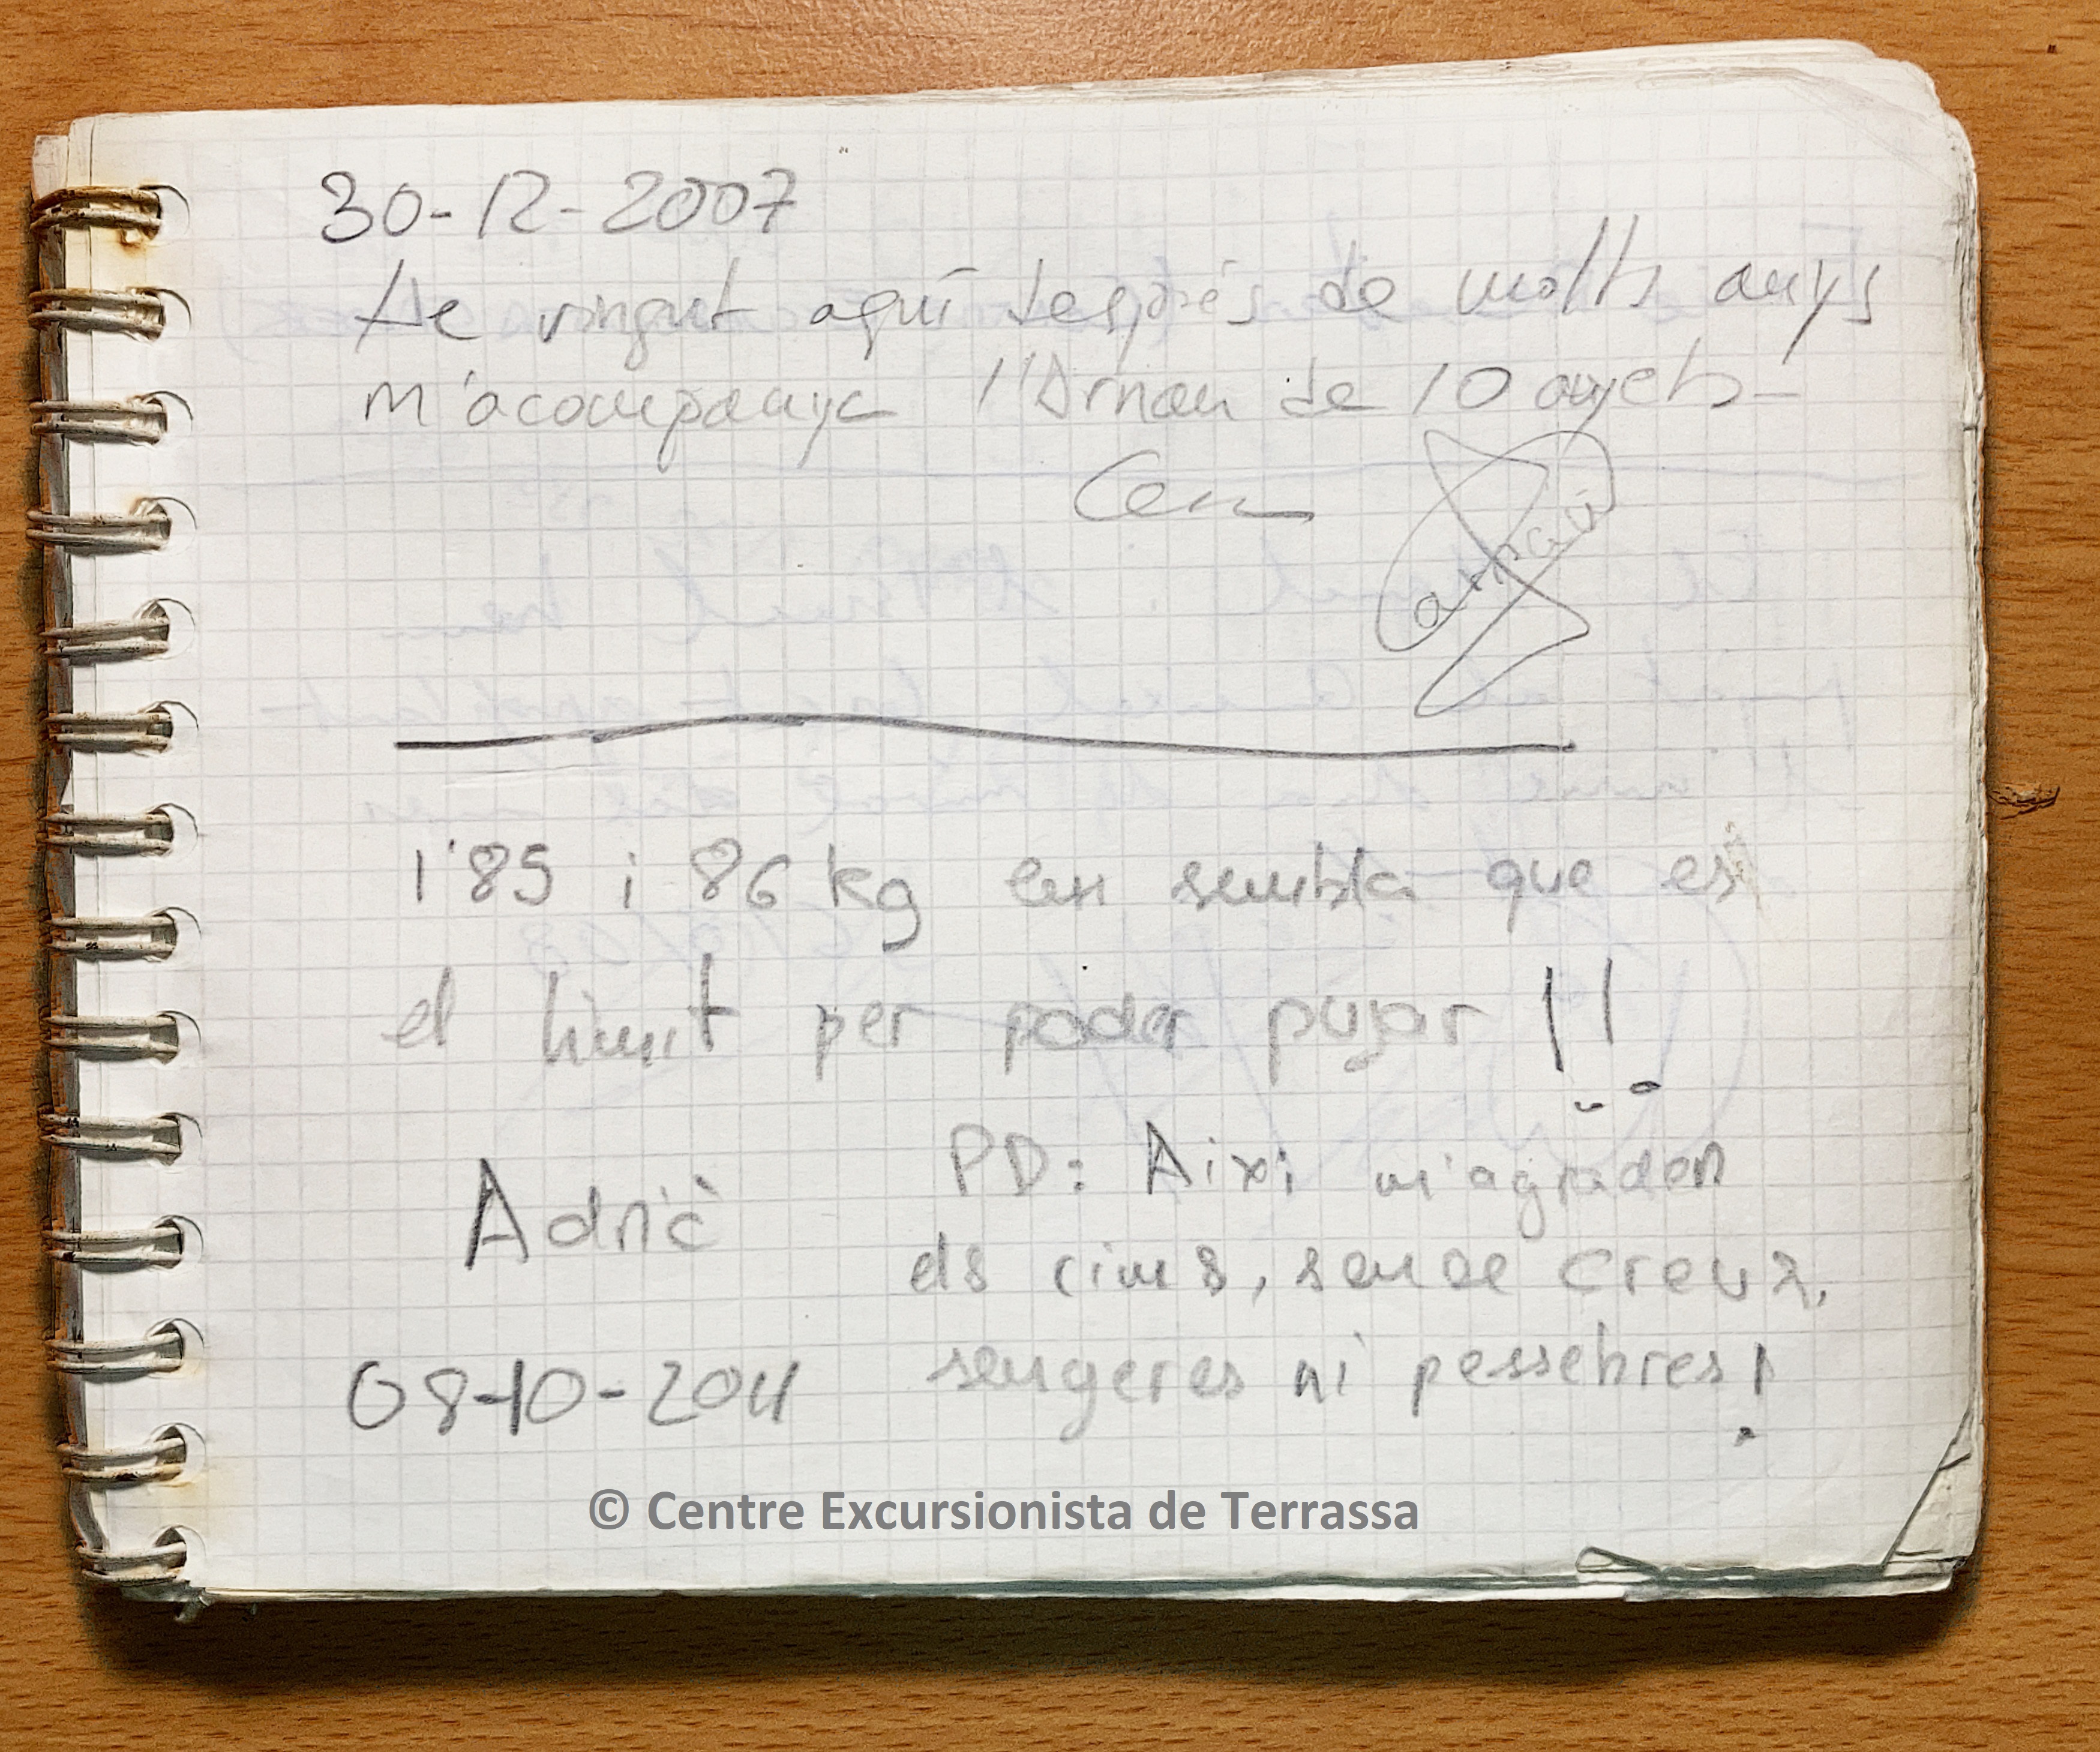 30-12-2007
He vingut aquí després de molts anys
m'acompanya l'Arnau de 10 anyets-
arnau
1'85 i 86 kg em sembla que es
el limit per poder pujar !!
Adrià
PD: Aixi m'agraden
els cims, sense creus,
senyeres ni pessebres!
08-10-2011
© Centre Excursionista de Terrassa